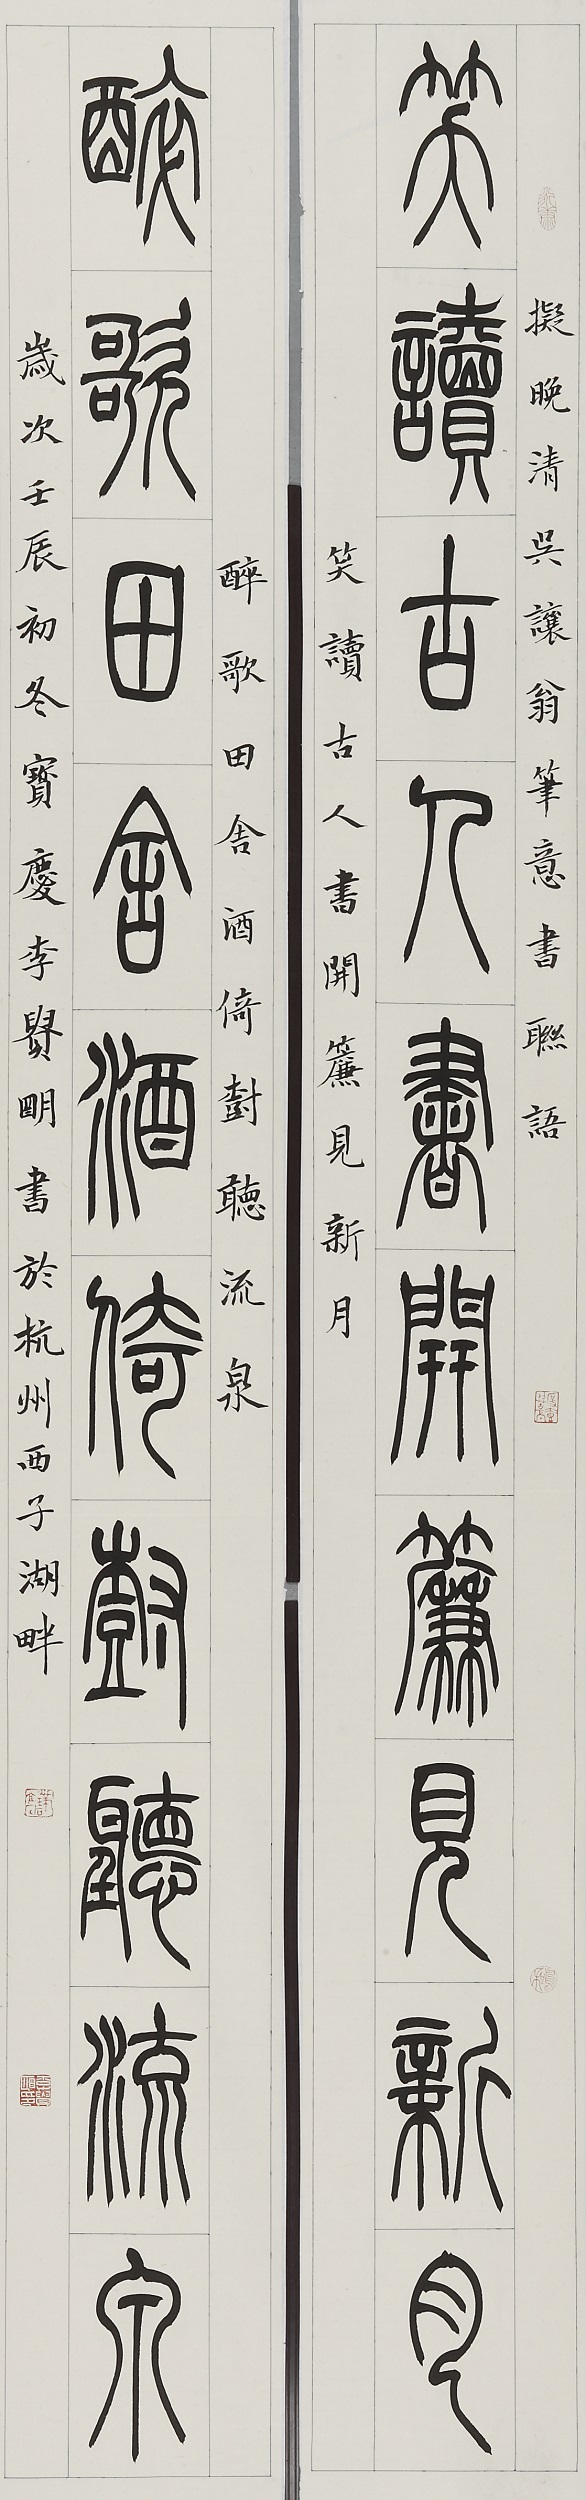 擬晚清吳讓翁筆意書聯語
笑讀古人書開簾見新月
笑讀古人書開簾見新月
醉歌田舎酒倚尌聽流泉
醉歌田舎酒倚尌聽流泉
歲次壬辰初冬寶慶李贤明書於杭州西子湖畔